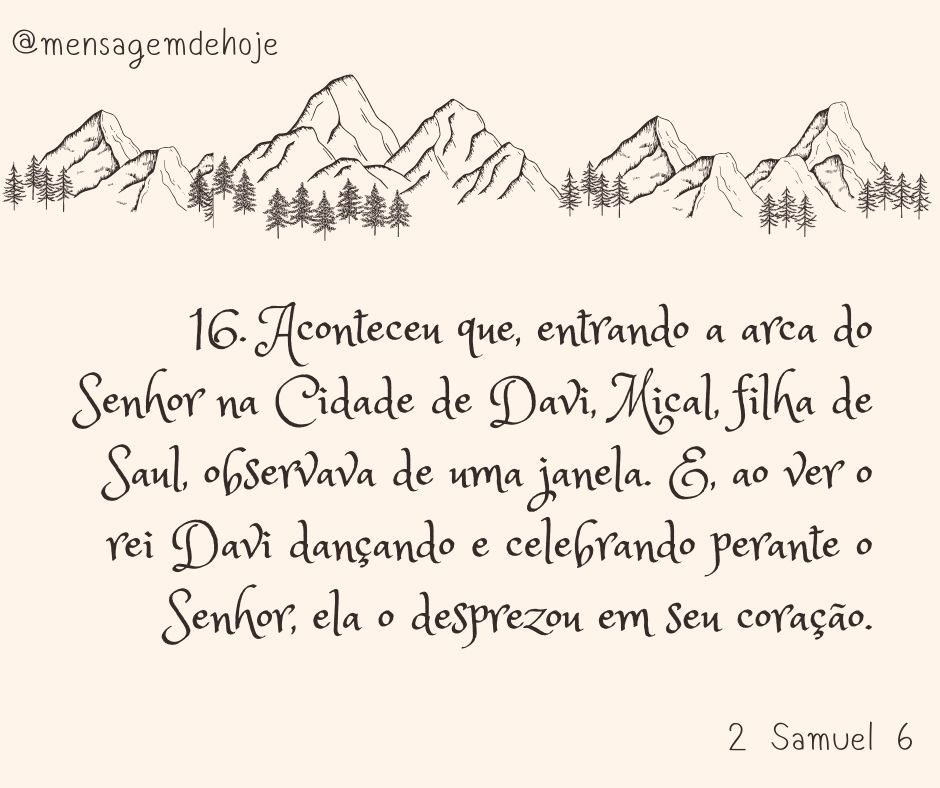 @mensagemdehoje
16. Aconteceu que, entrando a arca do
Senhor na Cidade de Davi, Mical, filha de
Saul, observava de uma janela. E, ao ver o
rei Davi dançando e celebrando perante o
Senhor, ela o desprezou em seu coração.
2 Samuel 6